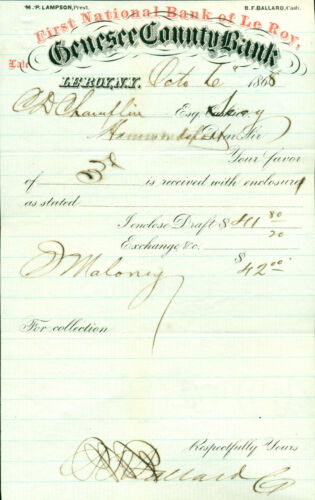 M. P. LAMPSON, Prest. B. F. BALLARD, Cash.
First National Bank of Le Roy,
Late
Genesee County Bank
LE ROY, N.Y. Octo 6 1868
C D Champlin Esq
Dear Sir
Your favor
of 3d is received with enclosures
as stated
I enclose Draft $ 41 80
Exchange &c. 20
$ 42.00
D Maloney
For collection
Respectfully Yours
B F Ballard C